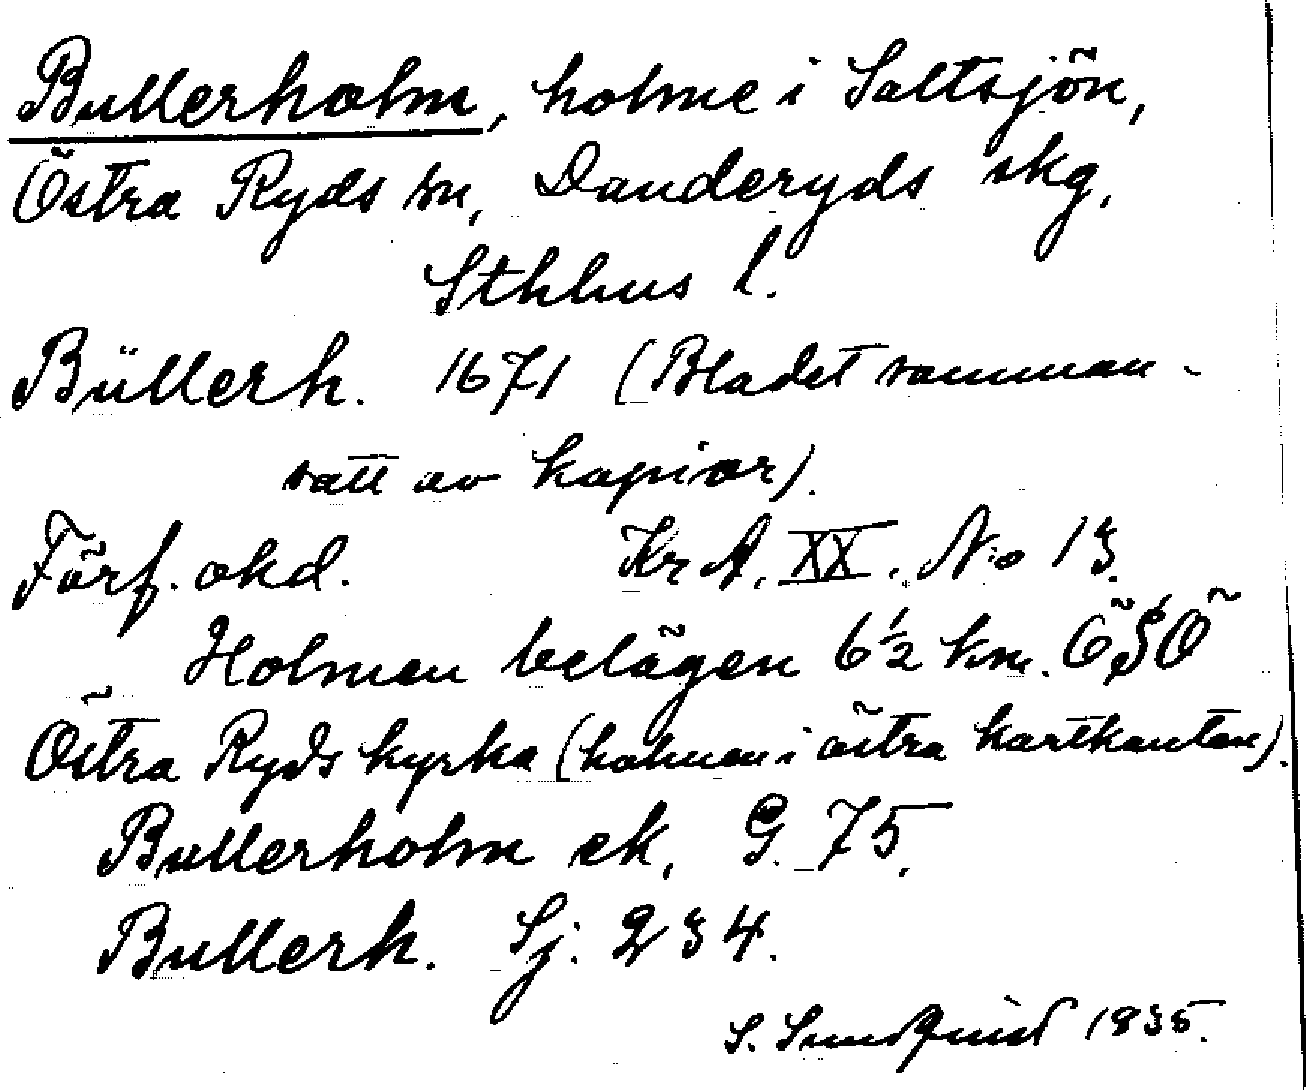 Bullerholm, holme i Saltsjön,
Östra Ryds sn, Danderyds skg,
Sthlms l.
Büllerh. 1671 (Bladet samman-
satt av kopior).
Förf. okd. Kr A. XX. No 13.
Holmen belägen 6½ km. ÖSÖ
Östra Ryds kyrka (holmen i östra kartkanten).
Bullerholm ek. G. 75.
Bullerh. Sj. 234.
S. Sundquist 1935.